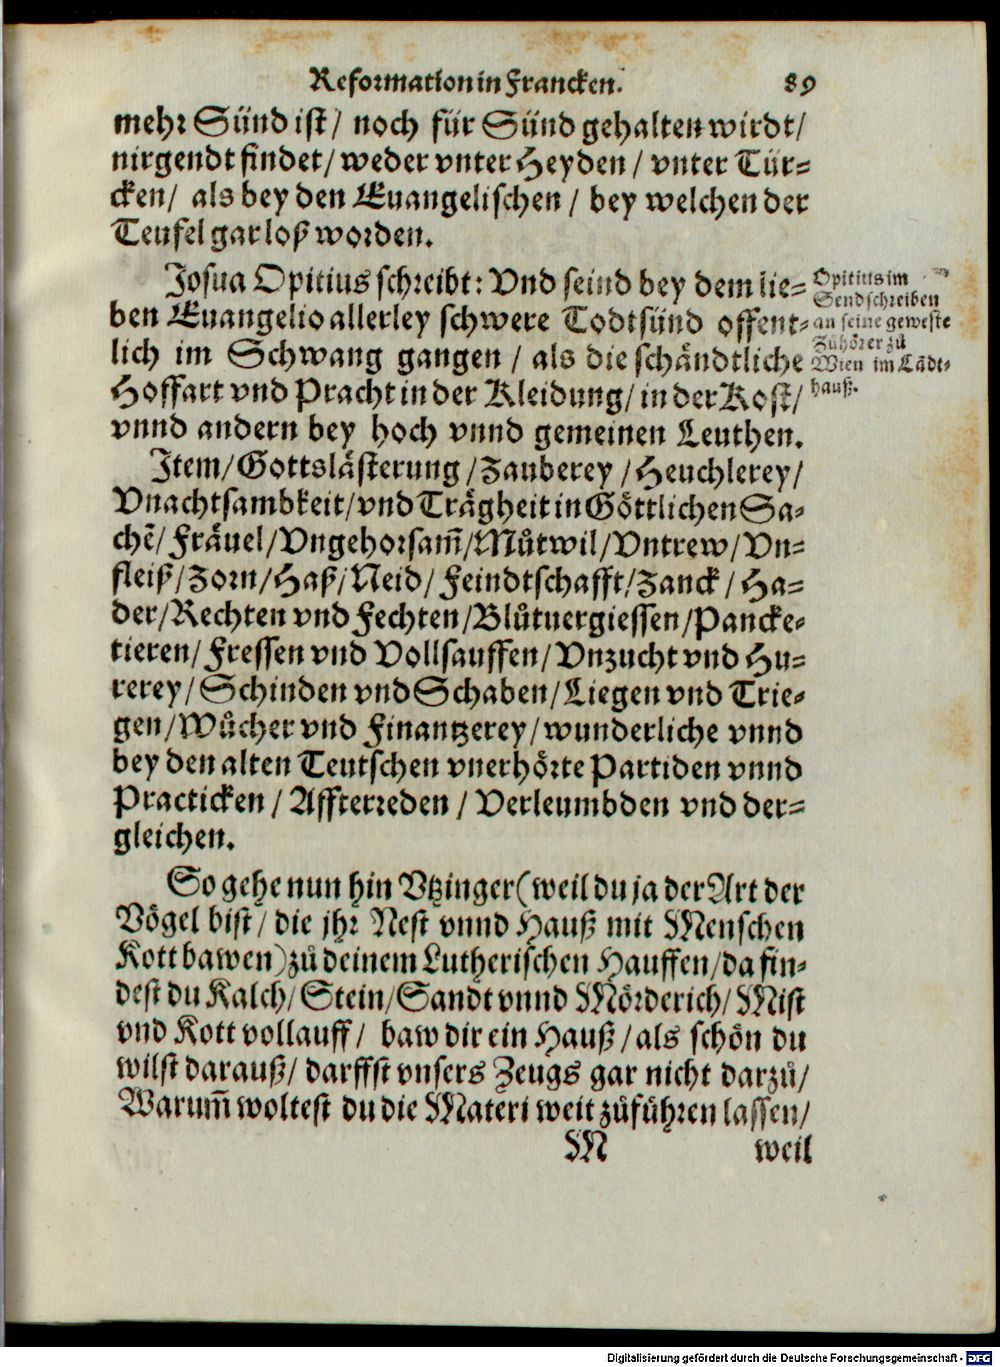 Reformation in Francken. 89
mehr Sünd ist/ noch für Sünd gehalten wirdt/
nirgendt findet/ weder vnter Heyden/ vnter Tür-
cken/ als bey den Euangelischen/ bey welchen der
Teufel gar loß worden.
Josua Opitius schreibt: Vnd seind bey dem lie-
ben Euangelio allerley schwere Todtsünd offent-
lich im Schwang gangen/ als die schändtliche
Hoffart vnd Pracht in der Kleidung/ in der Kost/
vnnd andern bey hoch vnnd gemeinen Leuthen.
Opitius im
Sendschreiben
an seine geweste
Zůhörer zů
Wien im Lädt-
hauß.
Item/ Gottslästerung/ Zauberey/ Heuchlerey/
Vnachtsambkeit/ vnd Trägheit in Göttlichen Sa-
chẽ/ Fräuel/ Vngehorsam̃/ Můtwil/ Vntrew/ Vn-
fleiß/ Zorn/ Haß/ Neid/ Feindtschafft/ Zanck/ Ha-
der/ Rechten vnd Fechten/ Blůtuergiessen/ Pancke-
tieren/ Fressen vnd Vollsauffen/ Vnzucht vnd Hu-
rerey/ Schinden vnd Schaben/ Liegen vnd Trie-
gen/ Wůcher vnd Finantzerey/ wunderliche vnnd
bey den alten Teutschen vnerhörte Partiden vnnd
Practicken/ Affterreden/ Verleumbden vnd der-
gleichen.
So gehe nun hin Vtzinger (weil du ja der Art der
Vögel bist/ die jhr Nest vnnd Hauß mit Menschen
Kott bawen) zů deinem Lutherischen Hauffen/ da fin-
dest du Kalch/ Stein/ Sandt vnnd Mörderich/ Mist
vnd Kott vollauff/ baw dir ein Hauß/ als schön du
wilst darauß/ darffst vnsers Zeugs gar nicht darzů/
Warum̃ woltest du die Materi weit zůführen lassen/
M weil
Digitalisierung gefördert durch die Deutsche Forschungsgemeinschaft - DFG